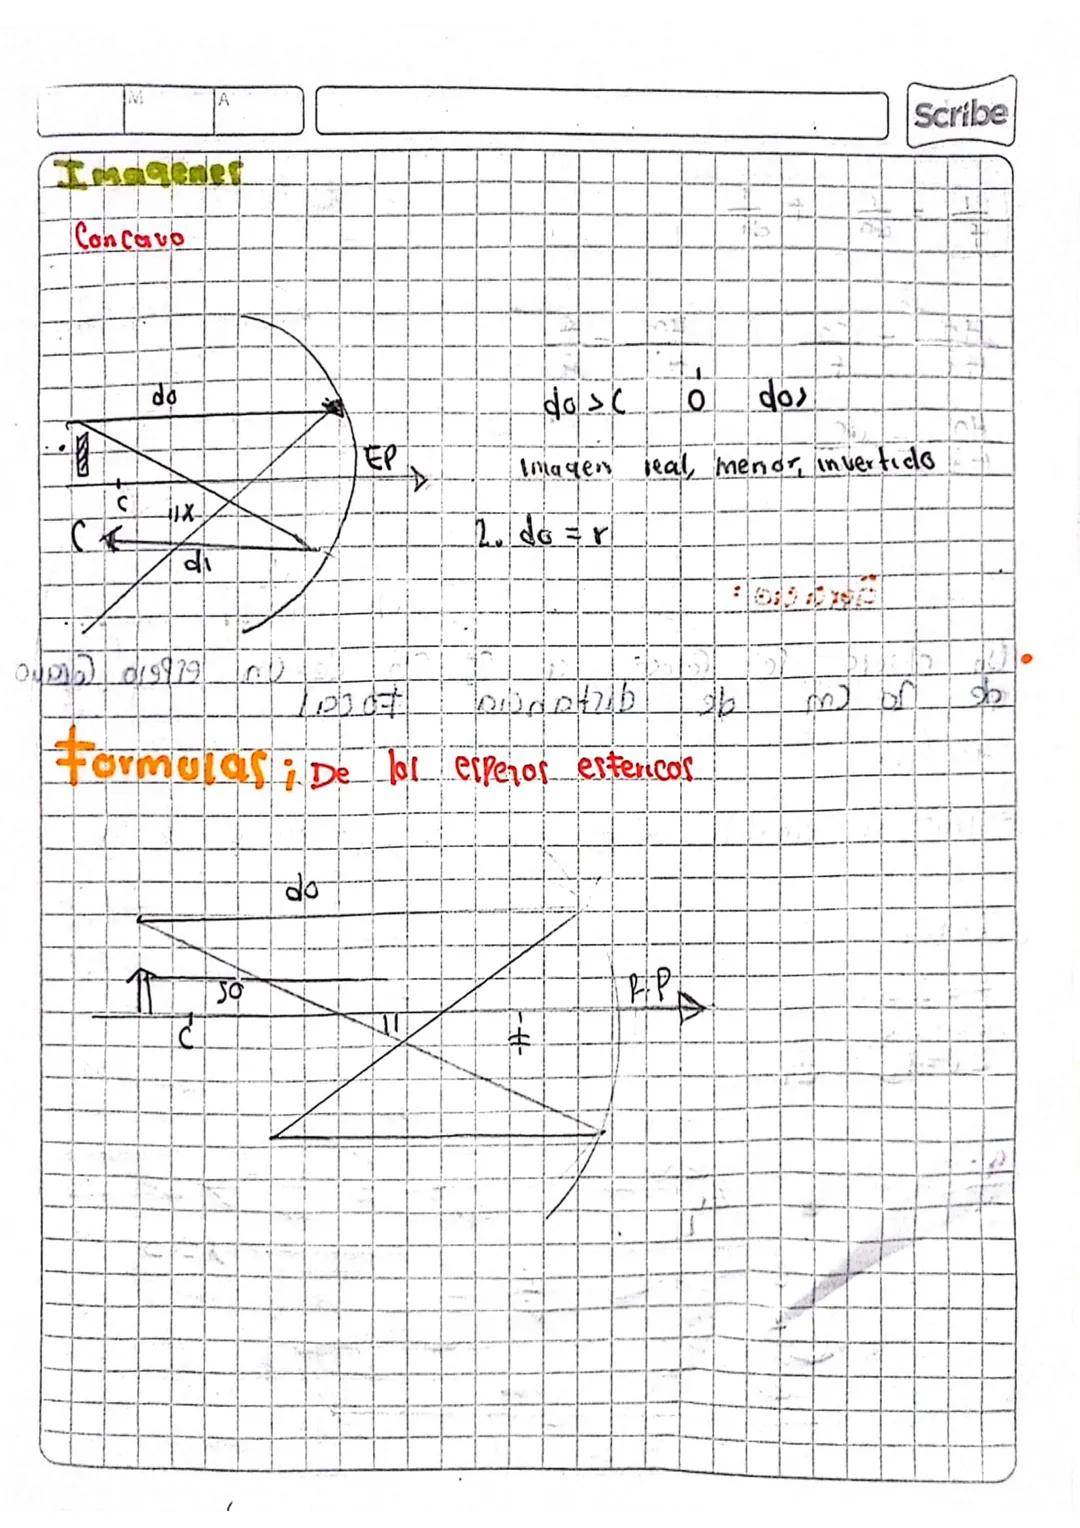 M A
Scribe
Imagenes
Concavo
do
do > C ó do>
EP
Imagen real, menor, invertido
C
C
di
2. do = r
Formulas; De los espejos esfericos
do
so
C